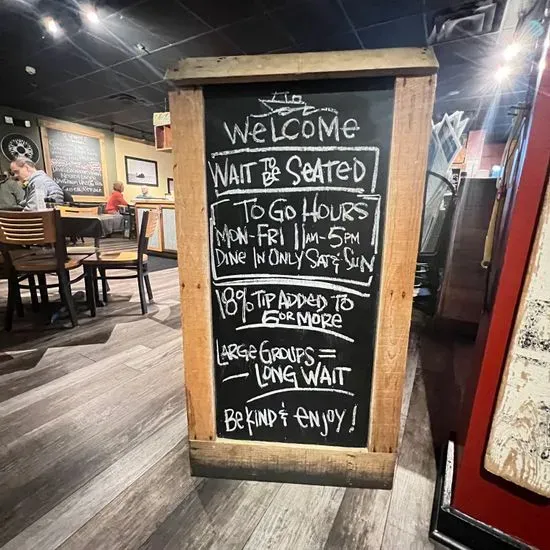 WELCOME
WAIT TO BE SEATED
TO GO HOURS
MON-FRI 11AM-5PM
DINE IN ONLY SAT & SUN
18% TIP ADDED TO
6 OR MORE
LARGE GROUPS =
— LONG WAIT
BE KIND & ENJOY!